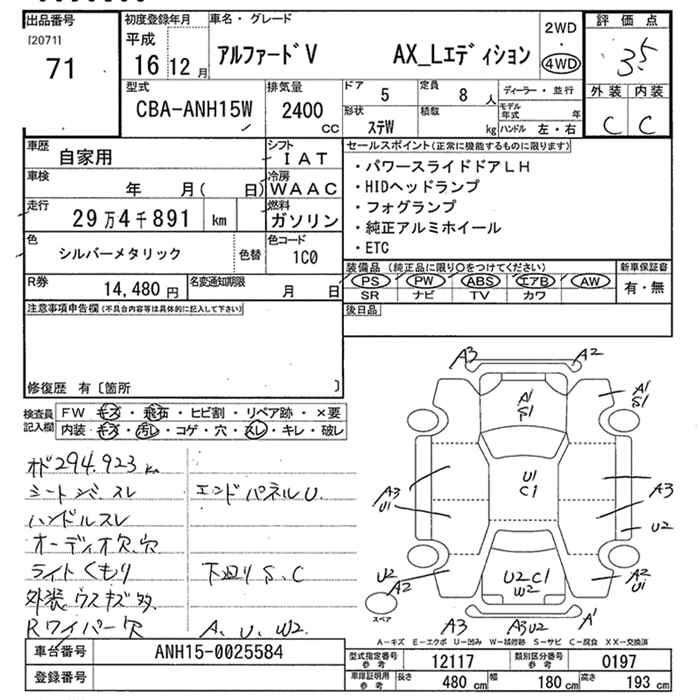 出品番号
[2071]
71
初度登録年月
平成
16 12 月
車名・グレード
アルファードV AX_Lエディション
2WD
・
4WD
評価点
3.5
外装 内装
C C
型式
CBA-ANH15W
排気量
2400 cc
ドア 5
定員 8 人
ディーラー・並行
形状 ステW
積数 kg
モデル年式 年
ハンドル 左・右
車歴 自家用
シフト IAT
車検 年 月( 日)
冷房 WAAC
走行 29万4千891 km
燃料 ガソリン
色 シルバーメタリック 色替
色コード 1C0
R券 14,480 円
名変通知期限 月 日
セールスポイント(正常に機能するものに限ります)
・パワースライドドアLH
・HIDヘッドランプ
・フォグランプ
・純正アルミホイール
・ETC
装備品 (純正品に限り○をつけてください) 新車保証書
PS PW ABS エアB AW 有・無
SR ナビ TV カワ
後日品
注意事項申告欄(不具合内容等は具体的に記入して下さい)
修復歴 有〔箇所 〕
検査員記入欄
FW キズ・飛石・ヒビ割・リペア跡・×要
内装 キズ・汚レ・コゲ・穴・スレ・キレ・破レ
オド294,923 km
シートシバ、スレ エンドパネルU.
ハンドルスレ
オーディオ欠、穴
ライトくもり 下廻りS、C
外装ウスキズ多
Rワイパー欠 A、U、W2.
A3 A2
A1 S1
A1 S1
U1 C1
A3 U1
A3
U2
U2 A2
U2C1 W2
A2 U1
スペア
A3 A3U2 A1
A-キズ E-エクボ U-凹み W-補修跡 S-サビ C-腐食 XX-交換済
車台番号 ANH15-0025584
登録番号
型式指定番号 参考 12117
類別区分番号 参考 0197
車庫証明用 参考 長さ 480 cm 幅 180 cm 高さ 193 cm